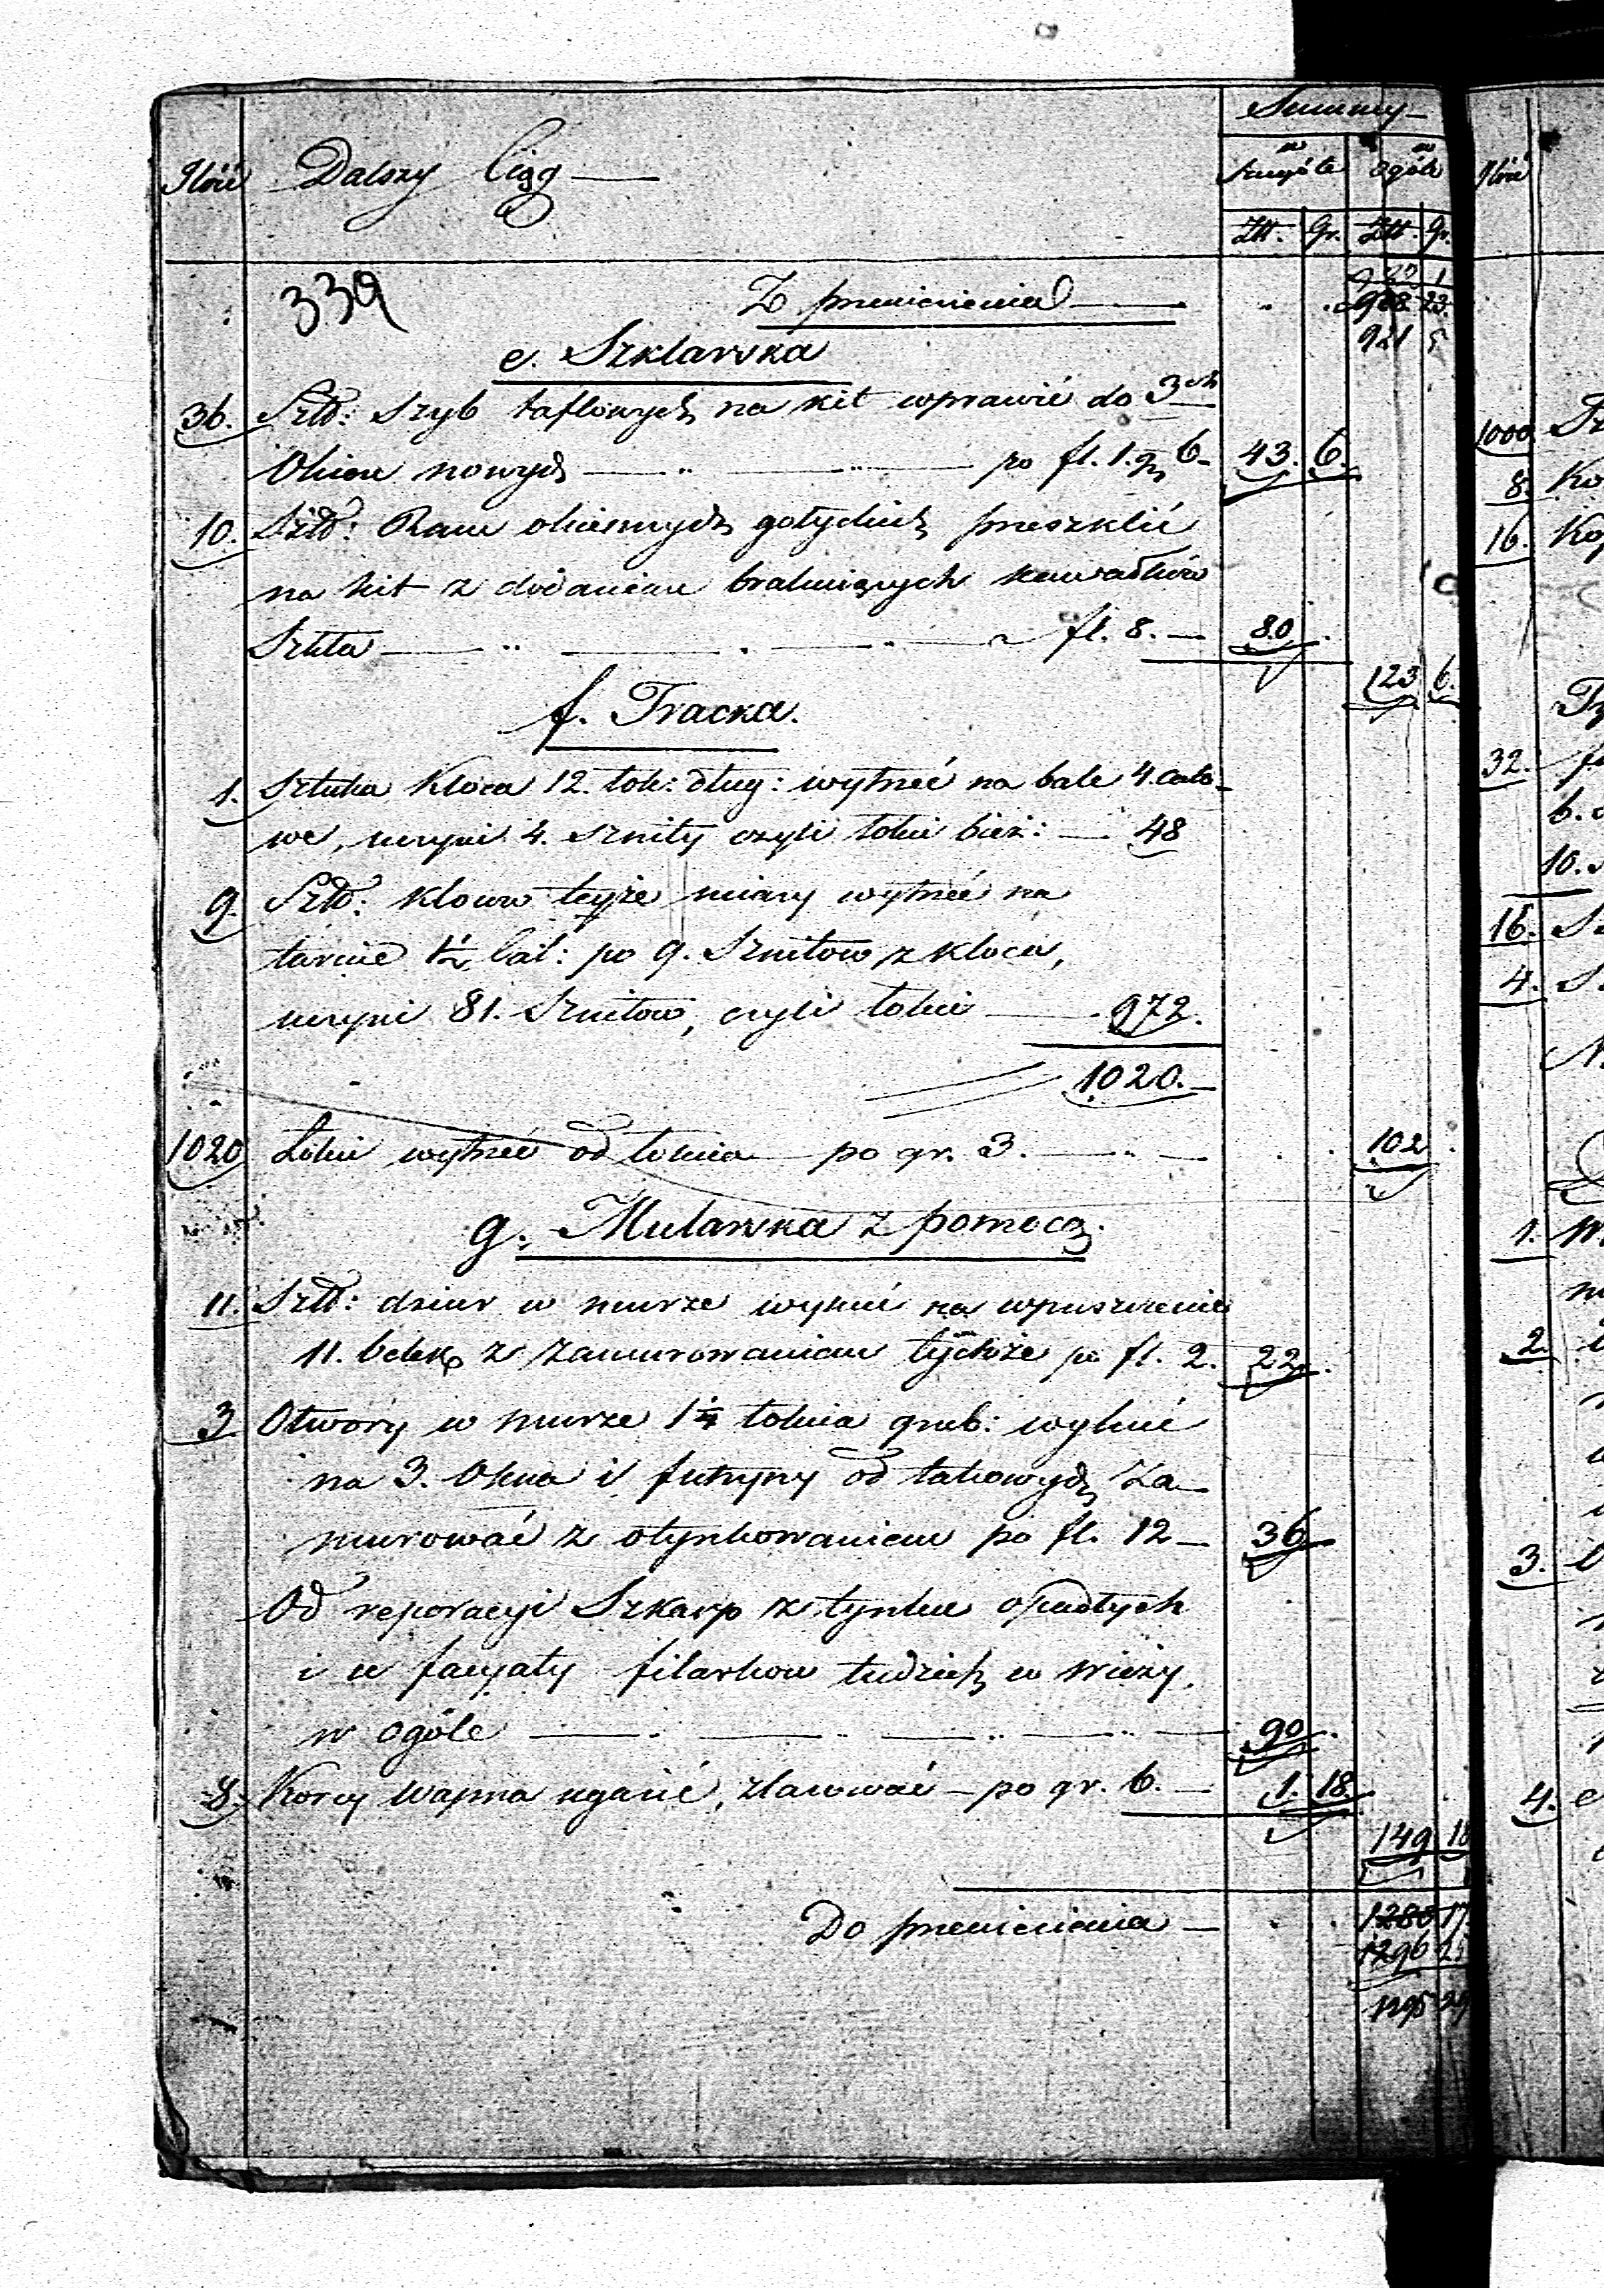 Summy
Ilość Dalszy Ciąg
w szczególe w ogóle
Złt. Gr. Złt. Gr.
339 Z przeniesienia 922 1
908 23
921 5
e. Szklarska
36. Sztk: Szyb taflowych na kit wprawić do 3ch
Okien nowych po fl. 1. gr 6 43. 6.
10. Sztk: Ram okiennych gotyckich przeszklić
na kit z dodaniem brakuiących kawałków
Szkła a fl. 8. 80
123 6.
f. Tracka.
1. Sztuka Kloca 12. łok: dług: wytrzeć na bale 4. calo-
we, uczyni 4. sznity czyli łokci bież: 48
9. Sztk: Klocow teyże miary wytrzeć na
tarcice 1½ cal: po 9. Sznitow z kloca,
uczyni 81. Sznitow, czyli łokci 972.
1020.
1020 Łokci wytrzeć od łokcia po gr. 3. 102
g. Mularska z pomocą.
11. Sztk: dziur w murze wykuć na wpuszczenie
11. belek z zamurowaniem tychże po fl. 2. 22.
3 Otwory w murze 1¼ łokcia grub: wykuć
na 3. Okna i futryny od takowych Za-
murować z otynkowaniem po fl. 12 36
Od reperacyi Szkarp z tynku opadłych
i u facyaty filarkow tudzież w wieży,
w ogóle 90
8. Korcy Wapna ugasić, zlasować po gr. 6. 1. 18.
149 18
Do przeniesienia 1280 17.
1296 25
1295 29